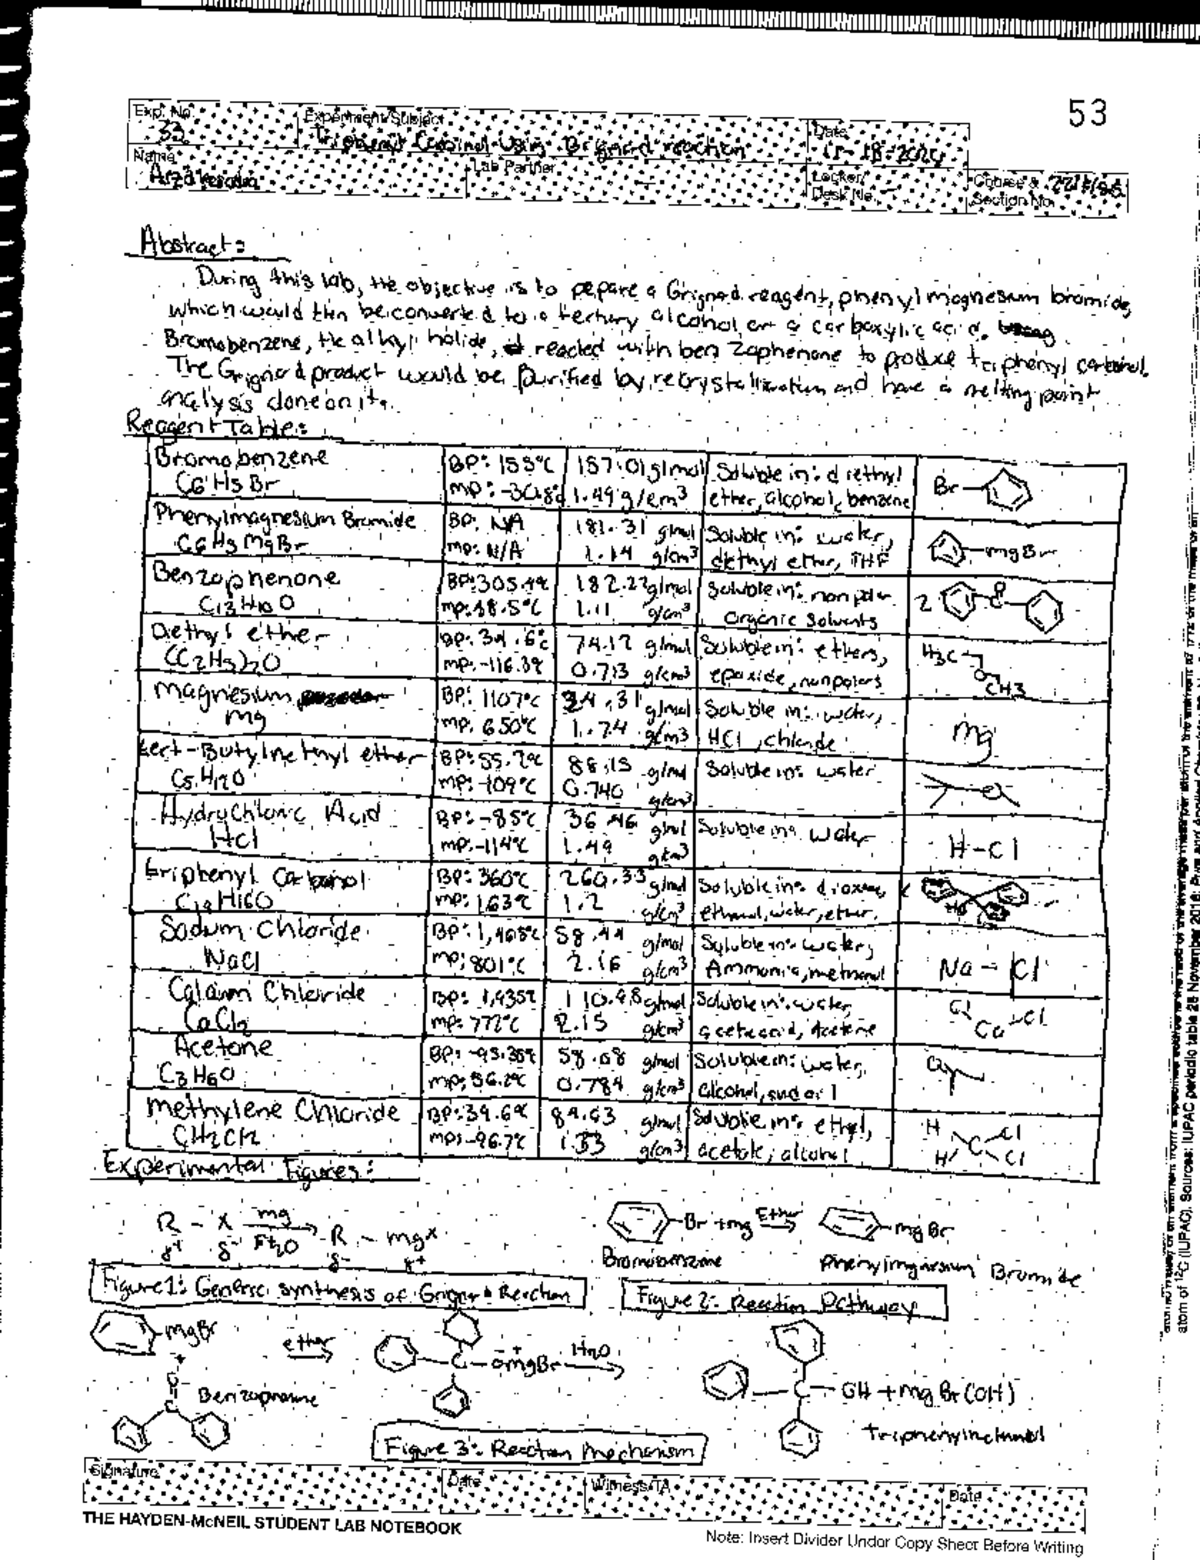 53
Exp. No. Experiment/Subject Date
33 Triphenyl Carbinol Using Grignard reaction 11-18-2024
Name Lab Partner Locker/ Desk No. Course & Section No.
Abstract:
During this lab, the objective is to pepare a Grignard reagent, phenylmagnesium bromide,
which would then be converted to a tertery alcohol or a carboxylic acid.
Bromobenzene, the alkyl halide, reacted with benzophenone to produce triphenyl carbinol.
The Grignard product would be purified by recrystallization and have a melting point
analysis done on it.
Reagent Table:
Bromobenzene BP: 153°C 157.01 g/mol Soluble in: diethyl Br
C6H5Br mp: -30.8°C 1.49 g/cm³ ether, alcohol, benzene
Phenylmagnesium Bromide BP: N/A 181.31 g/mol Soluble in: water, mgBr
C6H5MgBr mp: N/A 1.14 g/cm³ diethyl ether, THF
Benzophenone BP: 305.4°C 182.22 g/mol Soluble in: nonpolar 2 O
C13H10O mp: 48.5°C 1.11 g/cm³ organic solvents
Diethyl ether BP: 34.6°C 74.12 g/mol Soluble in: ethers, H3C
(C2H5)2O mp: -116.3°C 0.713 g/cm³ epoxide, nonpolars O CH3
magnesium BP: 1107°C 24.31 g/mol Soluble in: water, mg
mg mp: 650°C 1.74 g/cm³ HCl, chloride
tert-Butylmethyl ether BP: 55.2°C 88.15 g/mol Soluble in: water O
C5H12O mp: -109°C 0.740 g/cm³
Hydrochloric Acid BP: -85°C 36.46 g/mol Soluble in: water H-Cl
HCl mp: -114°C 1.49 g/cm³
triphenyl Carbinol BP: 360°C 260.33 g/mol Soluble in: dioxane, HO
C19H16O mp: 163°C 1.2 g/cm³ ethanol, water, ether,
Sodium Chloride BP: 1,465°C 58.44 g/mol Soluble in: water, Na - Cl
NaCl mp: 801°C 2.16 g/cm³ Ammonia, methanol
Calcium Chloride BP: 1,935°C 110.98 g/mol Soluble in: water, Cl Ca Cl
CaCl2 mp: 772°C 2.15 g/cm³ acetic acid, Acetone
Acetone BP: -95.35°C 58.08 g/mol Soluble in: water, O
C3H6O mp: 56.2°C 0.784 g/cm³ alcohol, and oil
methylene Chloride BP: 39.6°C 84.93 g/mol Soluble in: ethyl, H Cl
CH2Cl2 mp: -96.7°C 1.33 g/cm³ acetate, alcohol H C Cl
Experimental Figures:
R - X mg Et2O R - mgx Br + mg Ether mgBr
δ+ δ- δ- δ+ Bromobenzene Phenylmagnesium Bromide
Figure 1: Generic synthesis of Grignard Reaction Figure 2: Reaction Pathway
mgBr ether C - OmgBr H2O C - OH + mgBr(OH)
+
O
C Benzophenone
Triphenylmethanol
Figure 3: Reaction mechanism
Signature Date Witness/TA Date
THE HAYDEN-McNEIL STUDENT LAB NOTEBOOK
Note: Insert Divider Under Copy Sheet Before Writing
atom of ¹²C (IUPAC). Sources: IUPAC periodic table 28 November 2016;